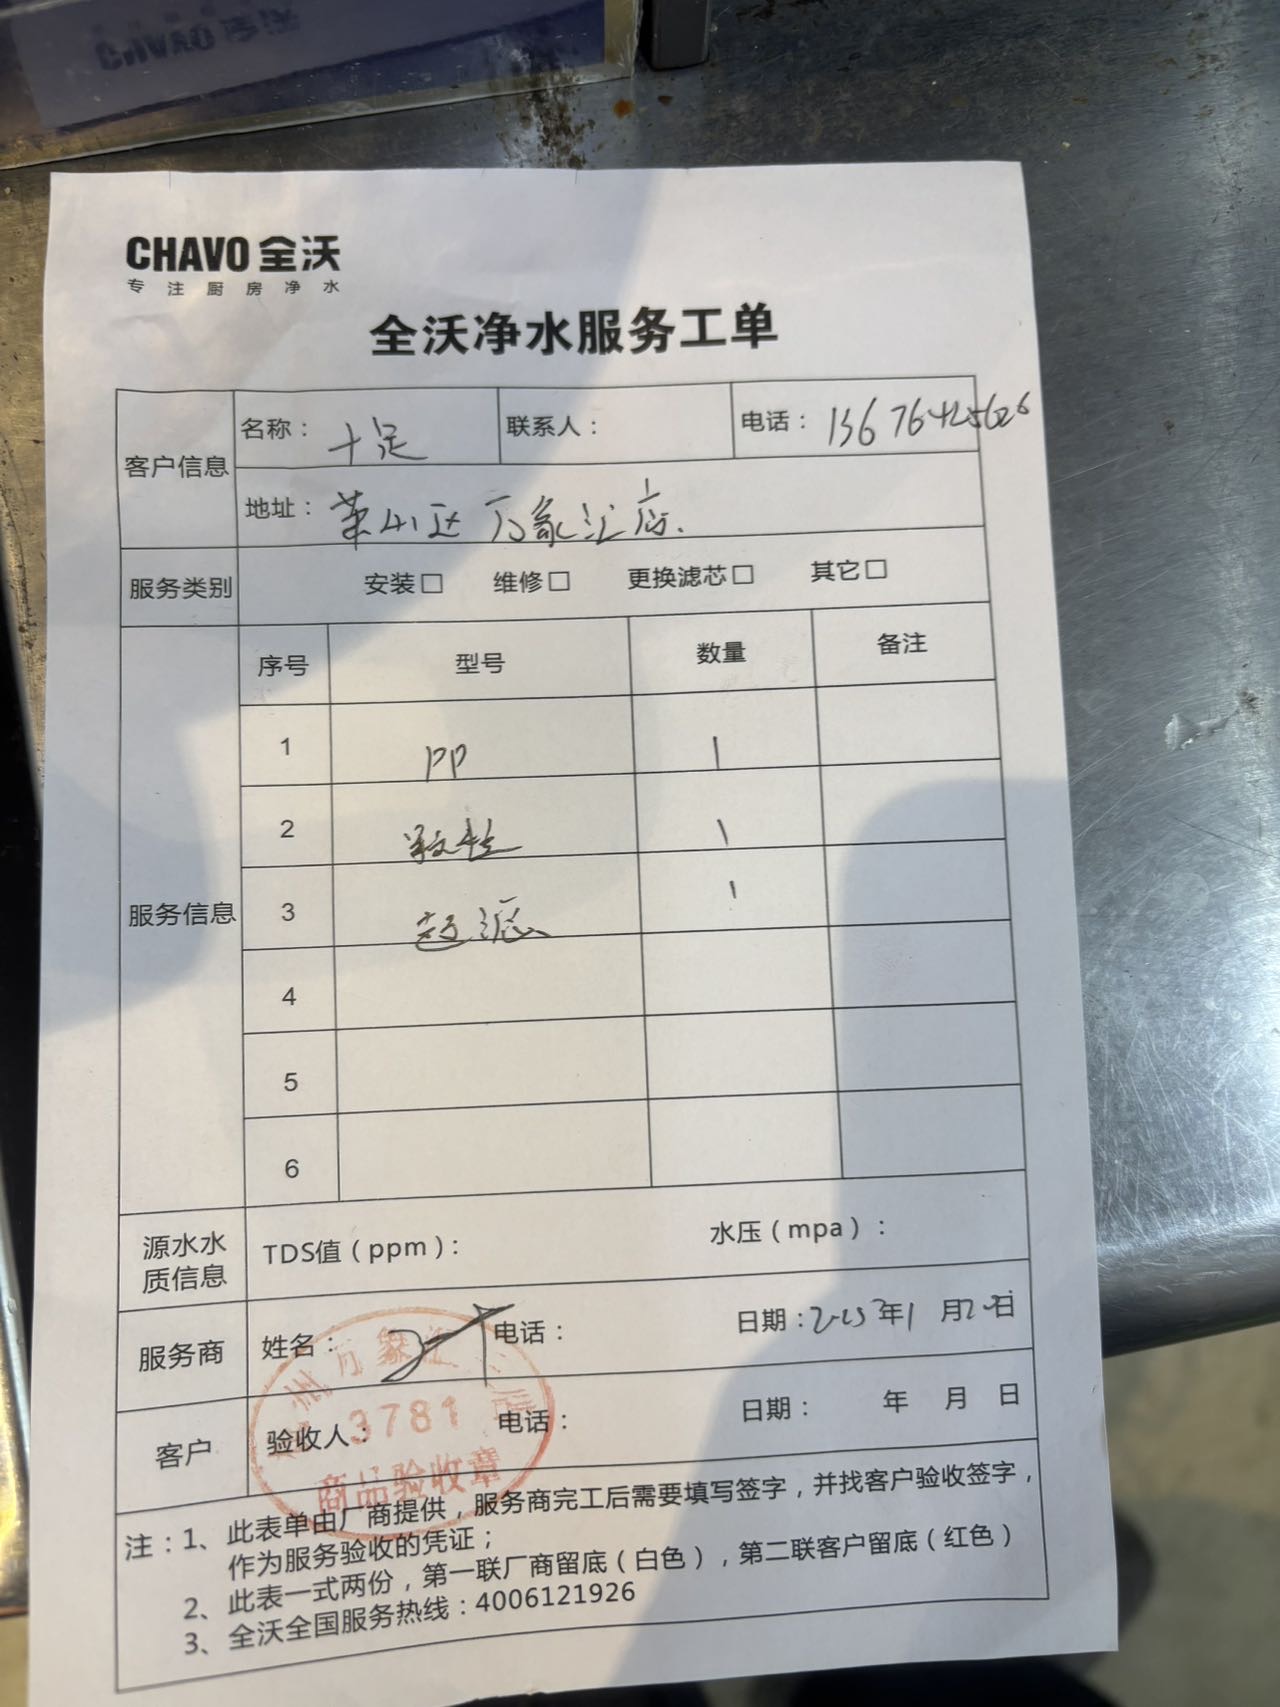 CHAVO 全沃
专注厨房净水
全沃净水服务工单
客户信息
名称： 十足
联系人：
电话： 13676425626
地址： 莱山区 万象汇店.
服务类别
安装□ 维修□ 更换滤芯□ 其它□
服务信息
序号 型号 数量 备注
1 PP 1
2 软性 1
3 超滤 1
4
5
6
源水水质信息
TDS值（ppm）： 水压（mpa）：
服务商
姓名： 电话： 日期： 年1月20日
客户
验收人： 电话： 日期： 年 月 日
州万象汇店
3781
商品验收章
注：1、此表单由厂商提供，服务商完工后需要填写签字，并找客户验收签字，
作为服务验收的凭证；
2、此表一式两份，第一联厂商留底（白色），第二联客户留底（红色）
3、全沃全国服务热线：4006121926